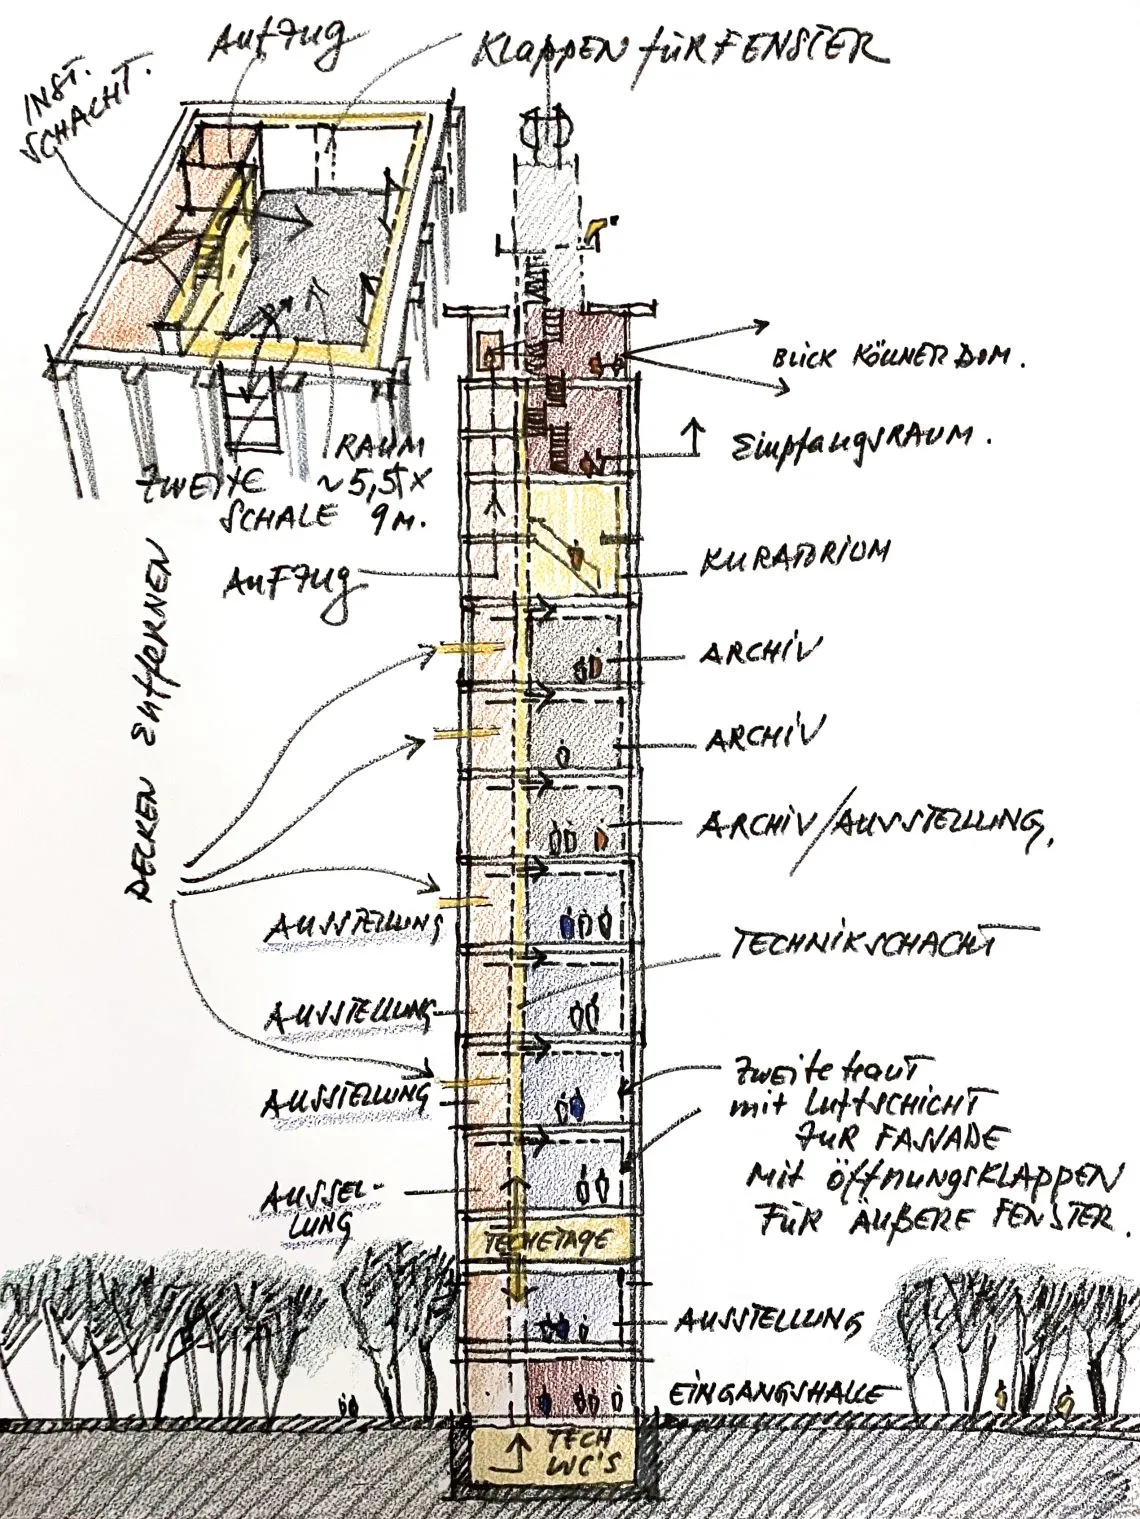 Aufzug
Klappen für FENSTER
INST.
SCHACHT.
BLiCK KÖLLNER DOM.
EmpfangsRAUM.
RAUM
~5,5 x
9 M.
ZWEITE
SCHALE
KURATORiUM
AUFZUG
DECKEN ENTFERNEN
ARCHiV
ARCHiV
ARCHiV/AUSSTELLUNG.
AUSSTELLUNG
TECHNIKSCHACHT
AUSSTELLUNG
AUSSTELLUNG
ZWEITE HAUT
mit LUFTSCHICHT
ZUR FASSADE
Mit ÖFFNUNGSKLAPPEN
FÜR ÄUßERE FENSTER.
AUSSEL-
LUNG
TECHETAGE
AUSSTELLUNG
EINGANGSHALLE
TECH
WC'S